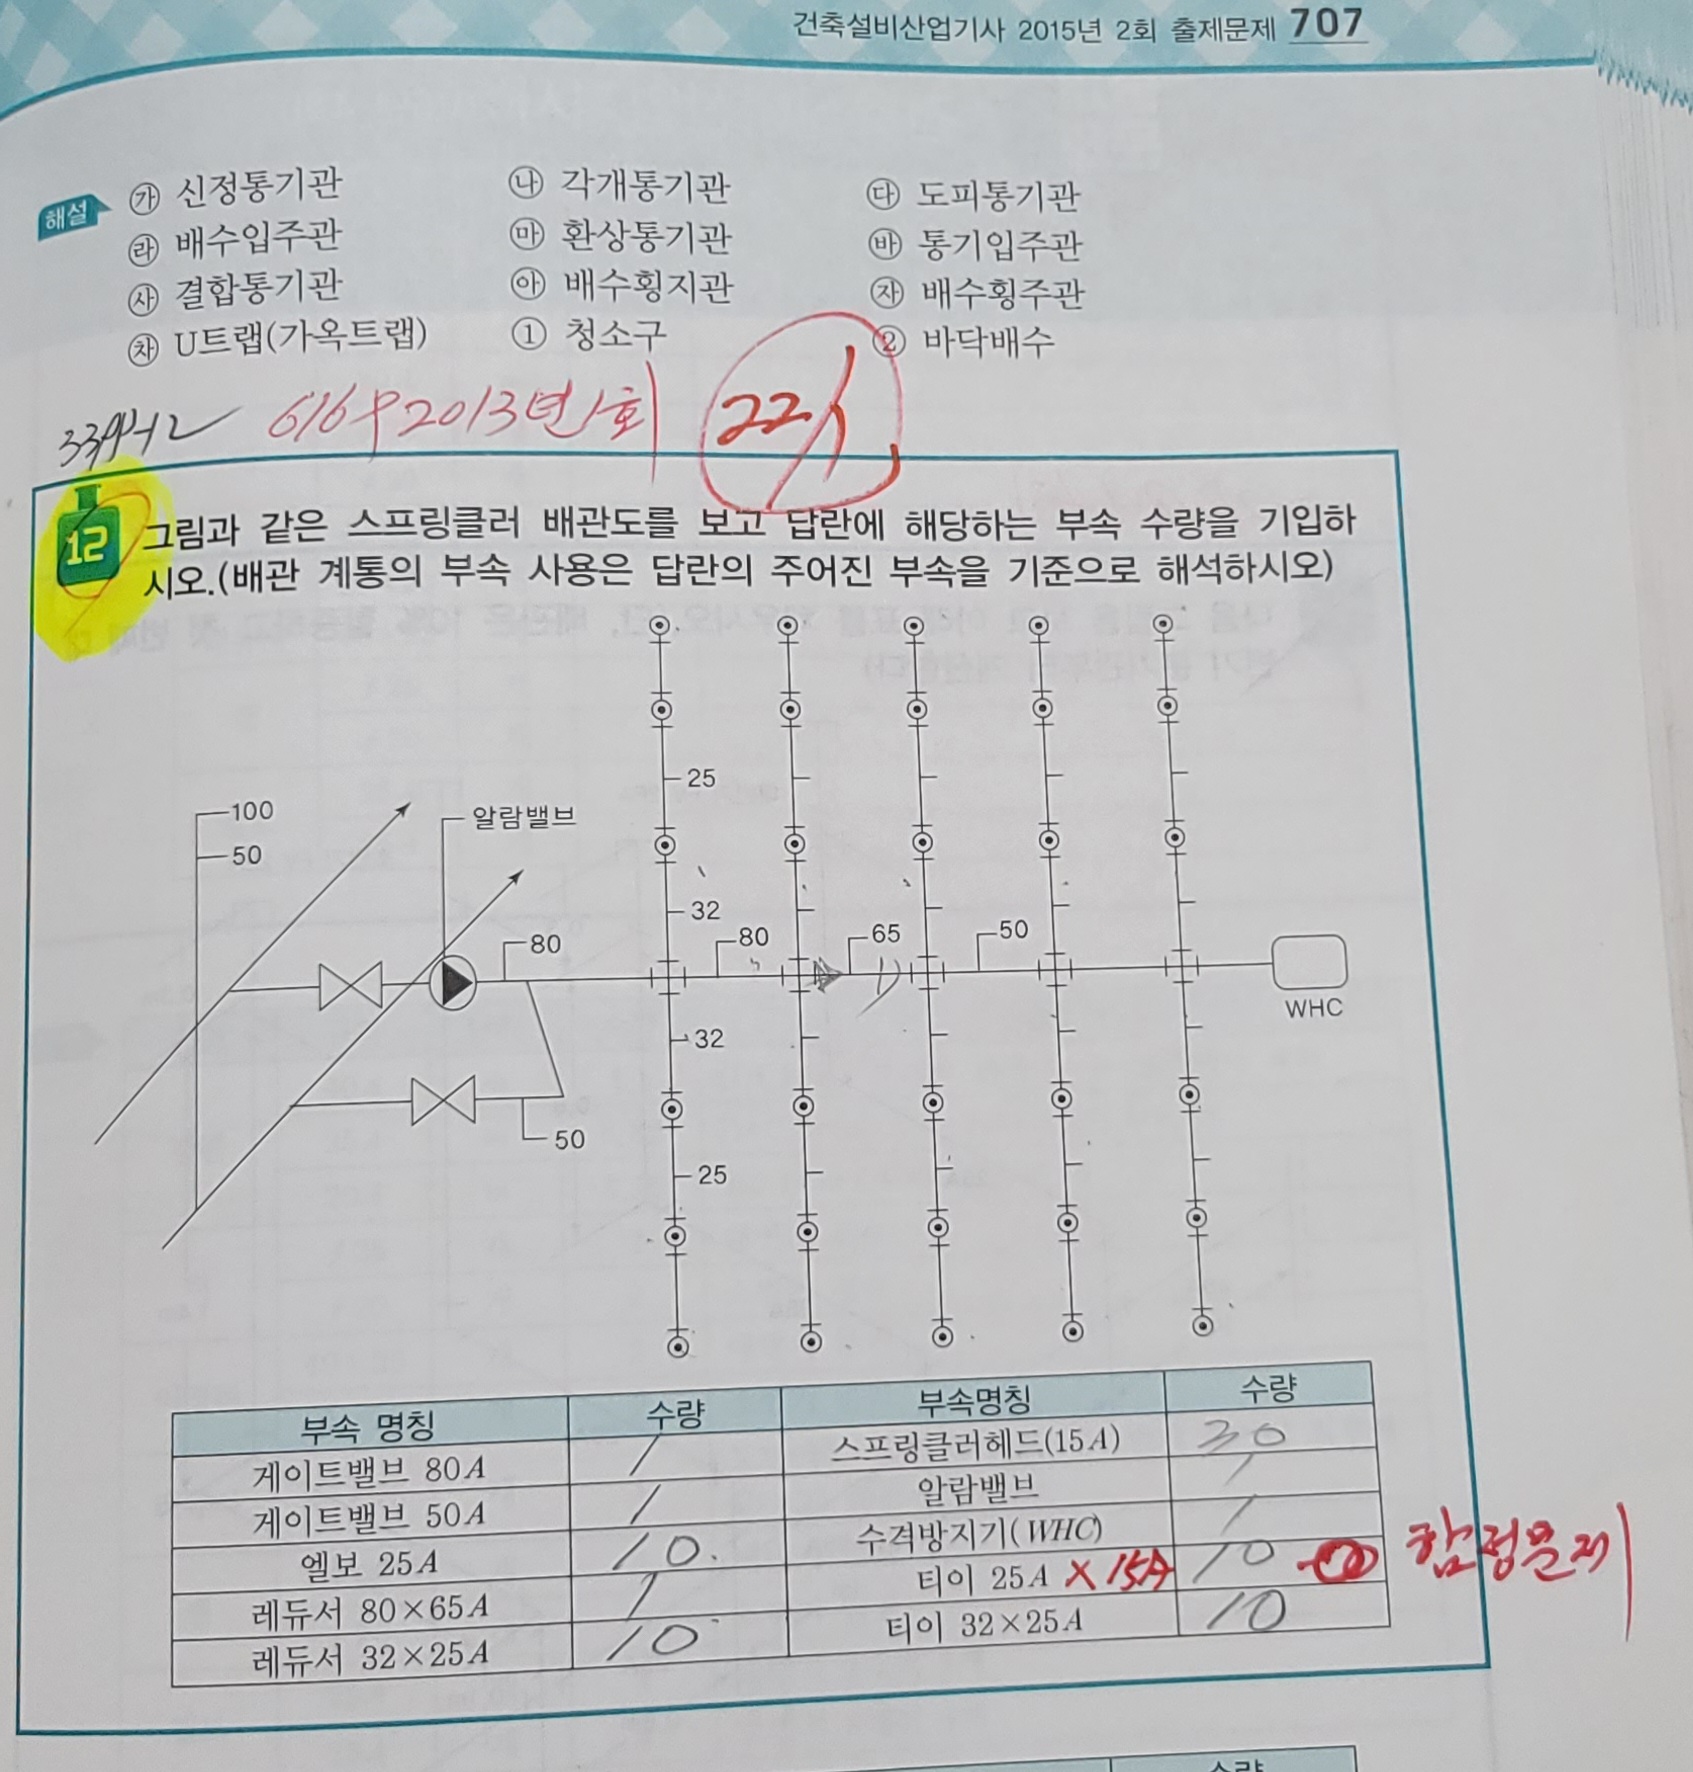 건축설비산업기사 2015년 2회 출제문제 707
해설 ㉮ 신정통기관 ㉯ 각개통기관 ㉰ 도피통기관
㉱ 배수입주관 ㉲ 환상통기관 ㉳ 통기입주관
㉴ 결합통기관 ㉵ 배수횡지관 ㉶ 배수횡주관
㉷ U트랩(가옥트랩) ① 청소구 ② 바닥배수
616 2013년 1회 22
12 그림과 같은 스프링클러 배관도를 보고 답란에 해당하는 부속 수량을 기입하
시오.(배관 계통의 부속 사용은 답란의 주어진 부속을 기준으로 해석하시오)
25
100
알람밸브
50
32
80
80
65
50
WHC
32
50
25
부속 명칭 수량 부속명칭 수량
게이트밸브 80A 1 스프링클러헤드(15A) 30
게이트밸브 50A 1 알람밸브 1
엘보 25A 10. 수격방지기(WHC) 1
레듀서 80×65A 1 티이 25A × 15A 10 함정문제
레듀서 32×25A 10 티이 32×25A 10
수량